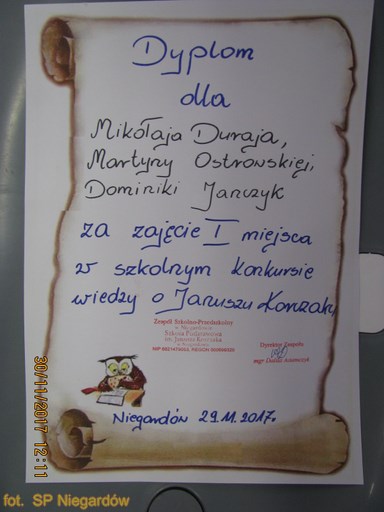 Dyplom
dla
Mikołaja Duraja,
Martyny Ostrowskiej,
Dominiki Janczyk
za zajęcie I miejsca
w szkolnym konkursie
wiedzy o Januszu Korczaku
Zespół Szkolno-Przedszkolny
w Niegardowie
Szkoła Podstawowa
im. Janusza Korczaka
w Niegardowie
Dyrektor Zespołu
mgr
Niegardów 29.11.2017r.
30/11/2017 12:11
fot. SP Niegardów